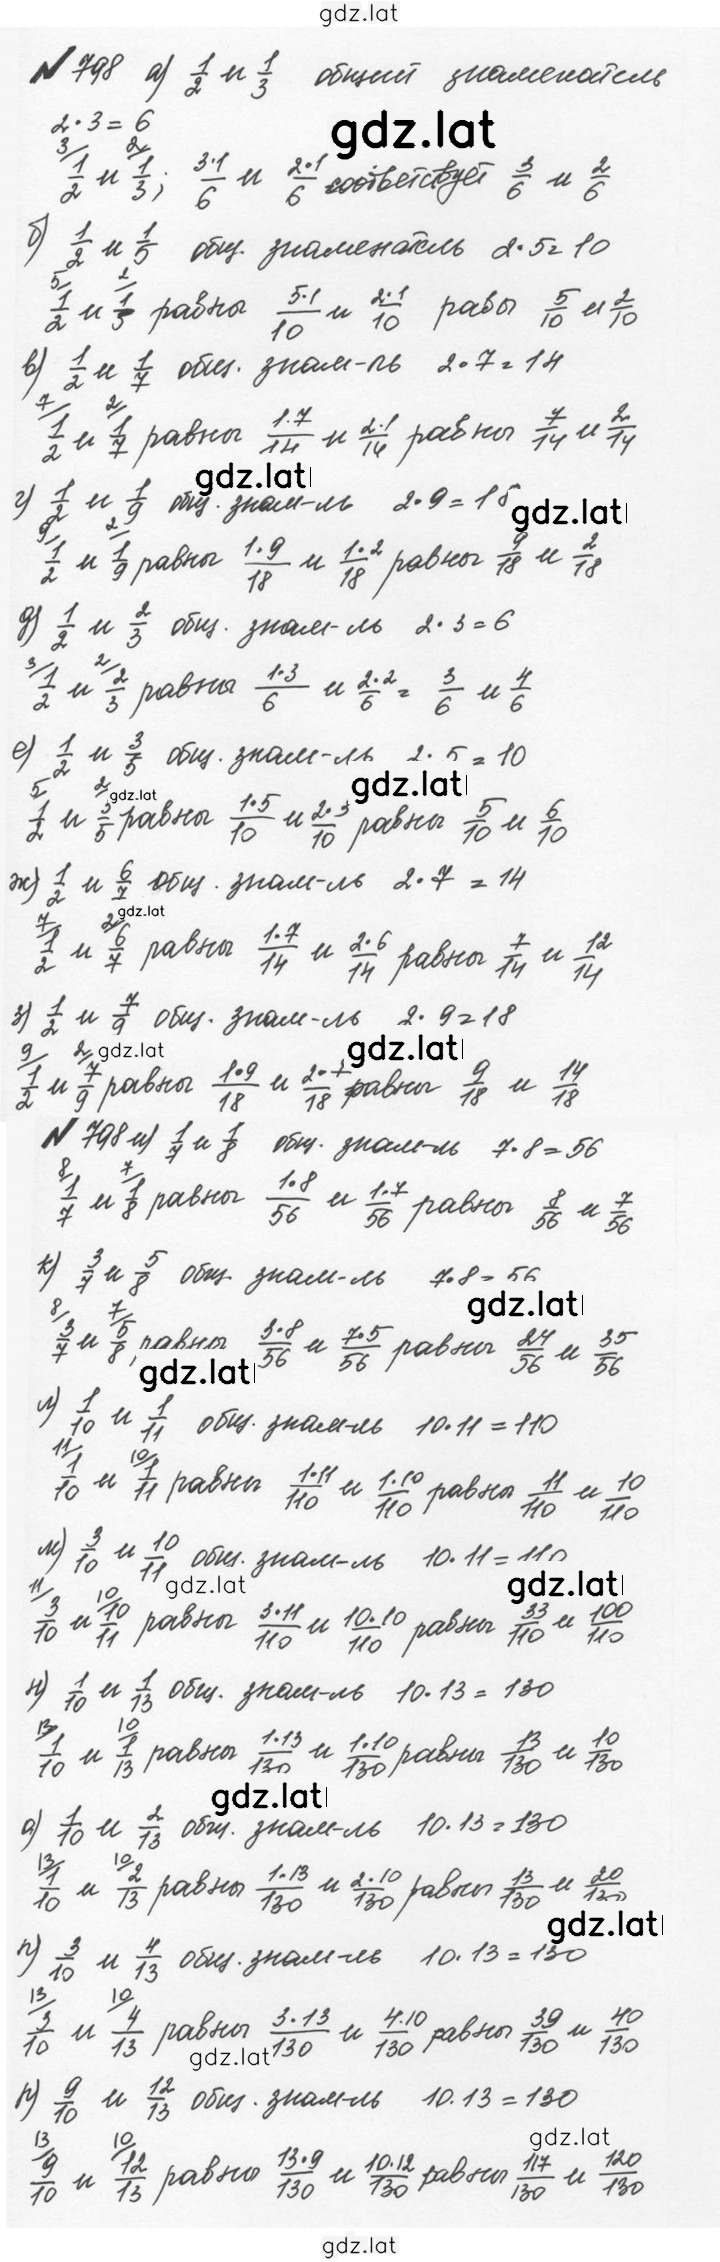 gdz.lat
N 798 а) 1/2 и 1/3 общий знаменатель
2·3=6
gdz.lat
3/ 1/2 и 2/ 1/3; 3·1/6 и 2·1/6 соответствует 3/6 и 2/6
б) 1/2 и 1/5 общ. знаменатель 2·5=10
5/ 1/2 и 2/ 1/5 равны 5·1/10 и 2·1/10 равы 5/10 и 2/10
в) 1/2 и 1/7 общ. знам-ль 2·7=14
7/ 1/2 и 2/ 1/7 равны 1·7/14 и 2·1/14 равны 7/14 и 2/14
gdz.lat
г) 1/2 и 1/9 общ. знам-ль 2·9=18
gdz.lat
9/ 1/2 и 2/ 1/9 равны 1·9/18 и 1·2/18 равны 9/18 и 2/18
д) 1/2 и 2/3 общ. знам-ль 2·3=6
3/ 1/2 и 2/ 2/3 равны 1·3/6 и 2·2/6 = 3/6 и 4/6
е) 1/2 и 3/5 общ. знам-ль 2·5=10
gdz.lat
gdz.lat
5 1/2 и 2/ 3/5 равны 1·5/10 и 2·3/10 равны 5/10 и 6/10
ж) 1/2 и 6/7 общ. знам-ль 2·7=14
gdz.lat
7/ 1/2 и 2/ 6/7 равны 1·7/14 и 2·6/14 равны 7/14 и 12/14
з) 1/2 и 7/9 общ. знам-ль 2·9=18
gdz.lat
gdz.lat
9/ 1/2 и 2/ 7/9 равны 1·9/18 и 2·7/18 равны 9/18 и 14/18
N 798 и) 1/7 и 1/8 общ. знам-ль 7·8=56
8/ 1/7 и 7/ 1/8 равны 1·8/56 и 1·7/56 равны 8/56 и 7/56
к) 3/7 и 5/8 общ. знам-ль 7·8=56
gdz.lat
8/ 3/7 и 7/ 5/8, равны 3·8/56 и 7·5/56 равны 24/56 и 35/56
gdz.lat
л) 1/10 и 1/11 общ. знам-ль 10·11=110
11/ 1/10 и 10/ 1/11 равны 1·11/110 и 1·10/110 равны 11/110 и 10/110
м) 3/10 и 10/11 общ. знам-ль 10·11=110
gdz.lat
gdz.lat
11/ 3/10 и 10/ 10/11 равны 3·11/110 и 10·10/110 равны 33/110 и 100/110
н) 1/10 и 1/13 общ. знам-ль 10·13=130
13 1/10 и 10 1/13 равны 1·13/130 и 1·10/130 равны 13/130 и 10/130
gdz.lat
о) 1/10 и 2/13 общ. знам-ль 10·13=130
13/ 1/10 и 10/ 2/13 равны 1·13/130 и 2·10/130 равны 13/130 и 20/130
gdz.lat
п) 3/10 и 4/13 общ. знам-ль 10·13=130
13/ 3/10 и 10/ 4/13 равны 3·13/130 и 4·10/130 равны 39/130 и 40/130
gdz.lat
р) 9/10 и 12/13 общ. знам-ль 10·13=130
gdz.lat
13/ 9/10 и 10/ 12/13 равны 13·9/130 и 10·12/130 равны 117/130 и 120/130
gdz.lat